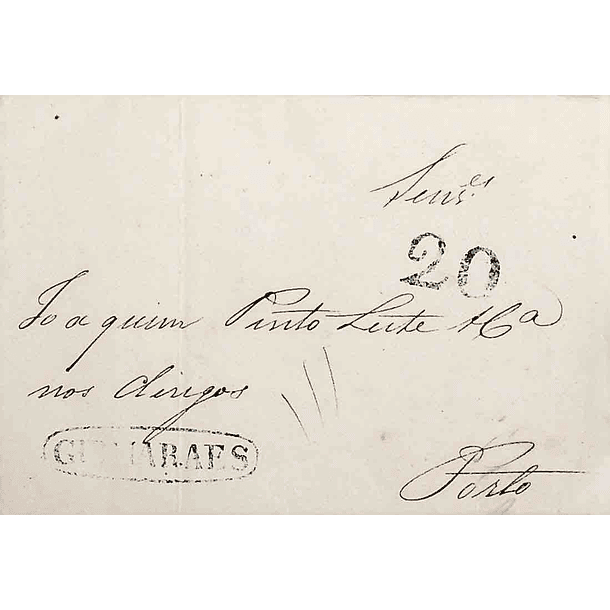 Senrs.
20
Joaquim Pinto Leite & Ca
nos clerigos
GUIMARAES
Porto